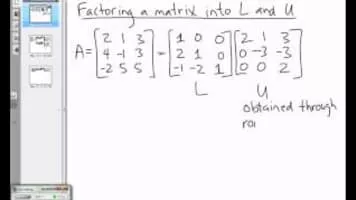 Factoring a matrix into L and U
A = [2 1 3; 4 -1 3; -2 5 5] = [1 0 0; 2 1 0; -1 -2 1] [2 1 3; 0 -3 -3; 0 0 2]
L U
obtained through